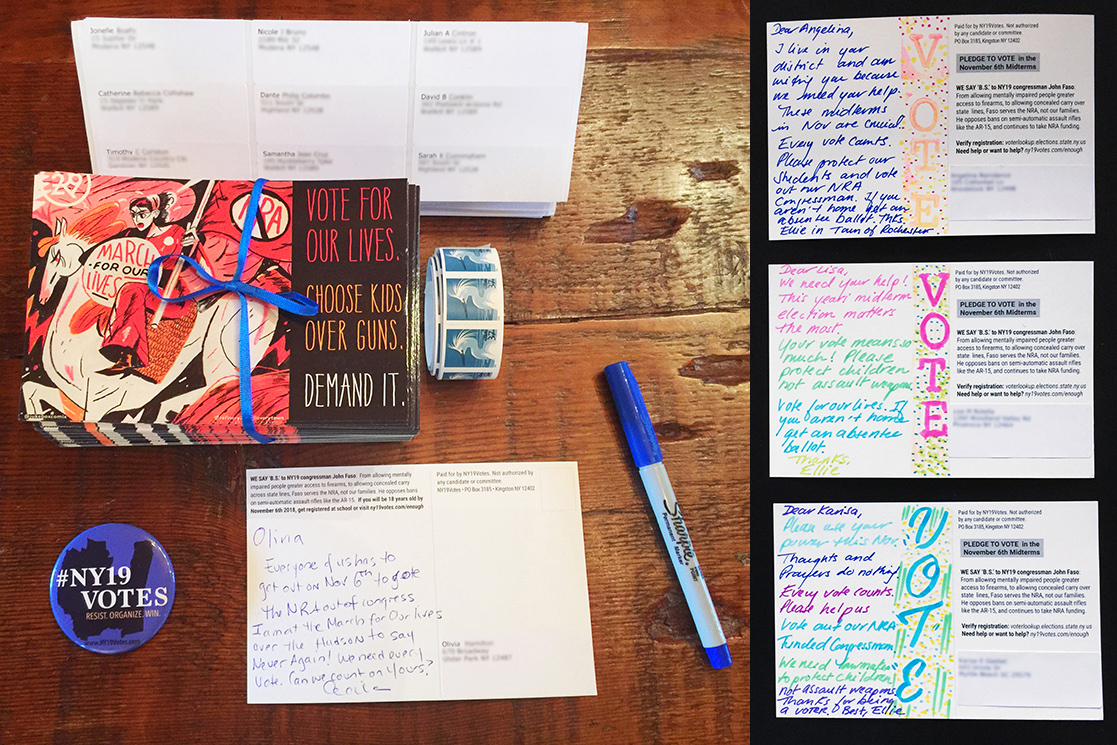 Jonelle
Nicole J Bruno
Julian A
Catherine Rebecca
Dante Philip Colombo
David B Conklin
Timothy C
Samantha
Sarah K Cunningham
28
NRA
MARCH
FOR OUR
LIVES
VOTE FOR
OUR LIVES.
CHOOSE KIDS
OVER GUNS.
DEMAND IT.
WE SAY 'B.S.' to NY19 congressman John Faso: From allowing mentally
impaired people greater access to firearms, to allowing concealed carry
across state lines, Faso serves the NRA, not our families. He opposes bans
on semi-automatic assault rifles like the AR-15. If you will be 18 years old by
November 6th 2018, get registered at school or visit ny19votes.com/enough
Paid for by NY19Votes. Not authorized by
any candidate or committee.
NY19Votes • PO Box 3185 • Kingston NY 12401
Olivia
Everyone of us has to
get out on Nov 6th to vote
the NRA out of congress
I am at the March for Our lives
over the Hudson to say
Never Again! We need every
vote. Can we count on yours?
Cecile
Olivia
#NY19
VOTES
RESIST. ORGANIZE. WIN.
www.NY19Votes.com
Sharpie
Permanent Marker
Dear Angelina,
I live in your
district and am
writing you because
we need your help.
These midterms
in Nov are crucial.
Every vote counts.
Please protect our
students and vote
out our NRA
Congressman. If you
aren't home get an
absentee ballot. Thks,
Ellie in Town of Rochester
VOTE
Paid for by NY19Votes. Not authorized
by any candidate or committee
PO Box 3185, Kingston NY 12402
PLEDGE TO VOTE in the
November 6th Midterms
WE SAY 'B.S.' to NY19 congressman John Faso:
From allowing mentally impaired people greater
access to firearms, to allowing concealed carry over
state lines, Faso serves the NRA, not our families.
He opposes bans on semi-automatic assault rifles
like the AR-15, and continues to take NRA funding.
Verify registration: voterlookup.elections.state.ny.us
Need help or want to help? ny19votes.com/enough
Dear Lisa,
We need your help!
This year midterm
election matters
the most.
Your vote means so
much! Please
protect children
not assault weapons.
Vote for our lives. If
you aren't home
get an absentee
ballot.
Thanks,
Ellie
VOTE
Paid for by NY19Votes. Not authorized
by any candidate or committee
PO Box 3185, Kingston NY 12402
PLEDGE TO VOTE in the
November 6th Midterms
WE SAY 'B.S.' to NY19 congressman John Faso:
From allowing mentally impaired people greater
access to firearms, to allowing concealed carry over
state lines, Faso serves the NRA, not our families.
He opposes bans on semi-automatic assault rifles
like the AR-15, and continues to take NRA funding.
Verify registration: voterlookup.elections.state.ny.us
Need help or want to help? ny19votes.com/enough
Dear Karisa,
Please use your
power this Nov.
Thoughts and
Prayers do nothing
Every vote counts.
Please help us
vote out our NRA
funded Congressman.
We need lawmakers
to protect children
not assault weapons.
Thanks for being
a VOTER! Best, Ellie
VOTE
Paid for by NY19Votes. Not authorized
by any candidate or committee
PO Box 3185, Kingston NY 12402
PLEDGE TO VOTE in the
November 6th Midterms
WE SAY 'B.S.' to NY19 congressman John Faso:
From allowing mentally impaired people greater
access to firearms, to allowing concealed carry over
state lines, Faso serves the NRA, not our families.
He opposes bans on semi-automatic assault rifles
like the AR-15, and continues to take NRA funding.
Verify registration: voterlookup.elections.state.ny.us
Need help or want to help? ny19votes.com/enough